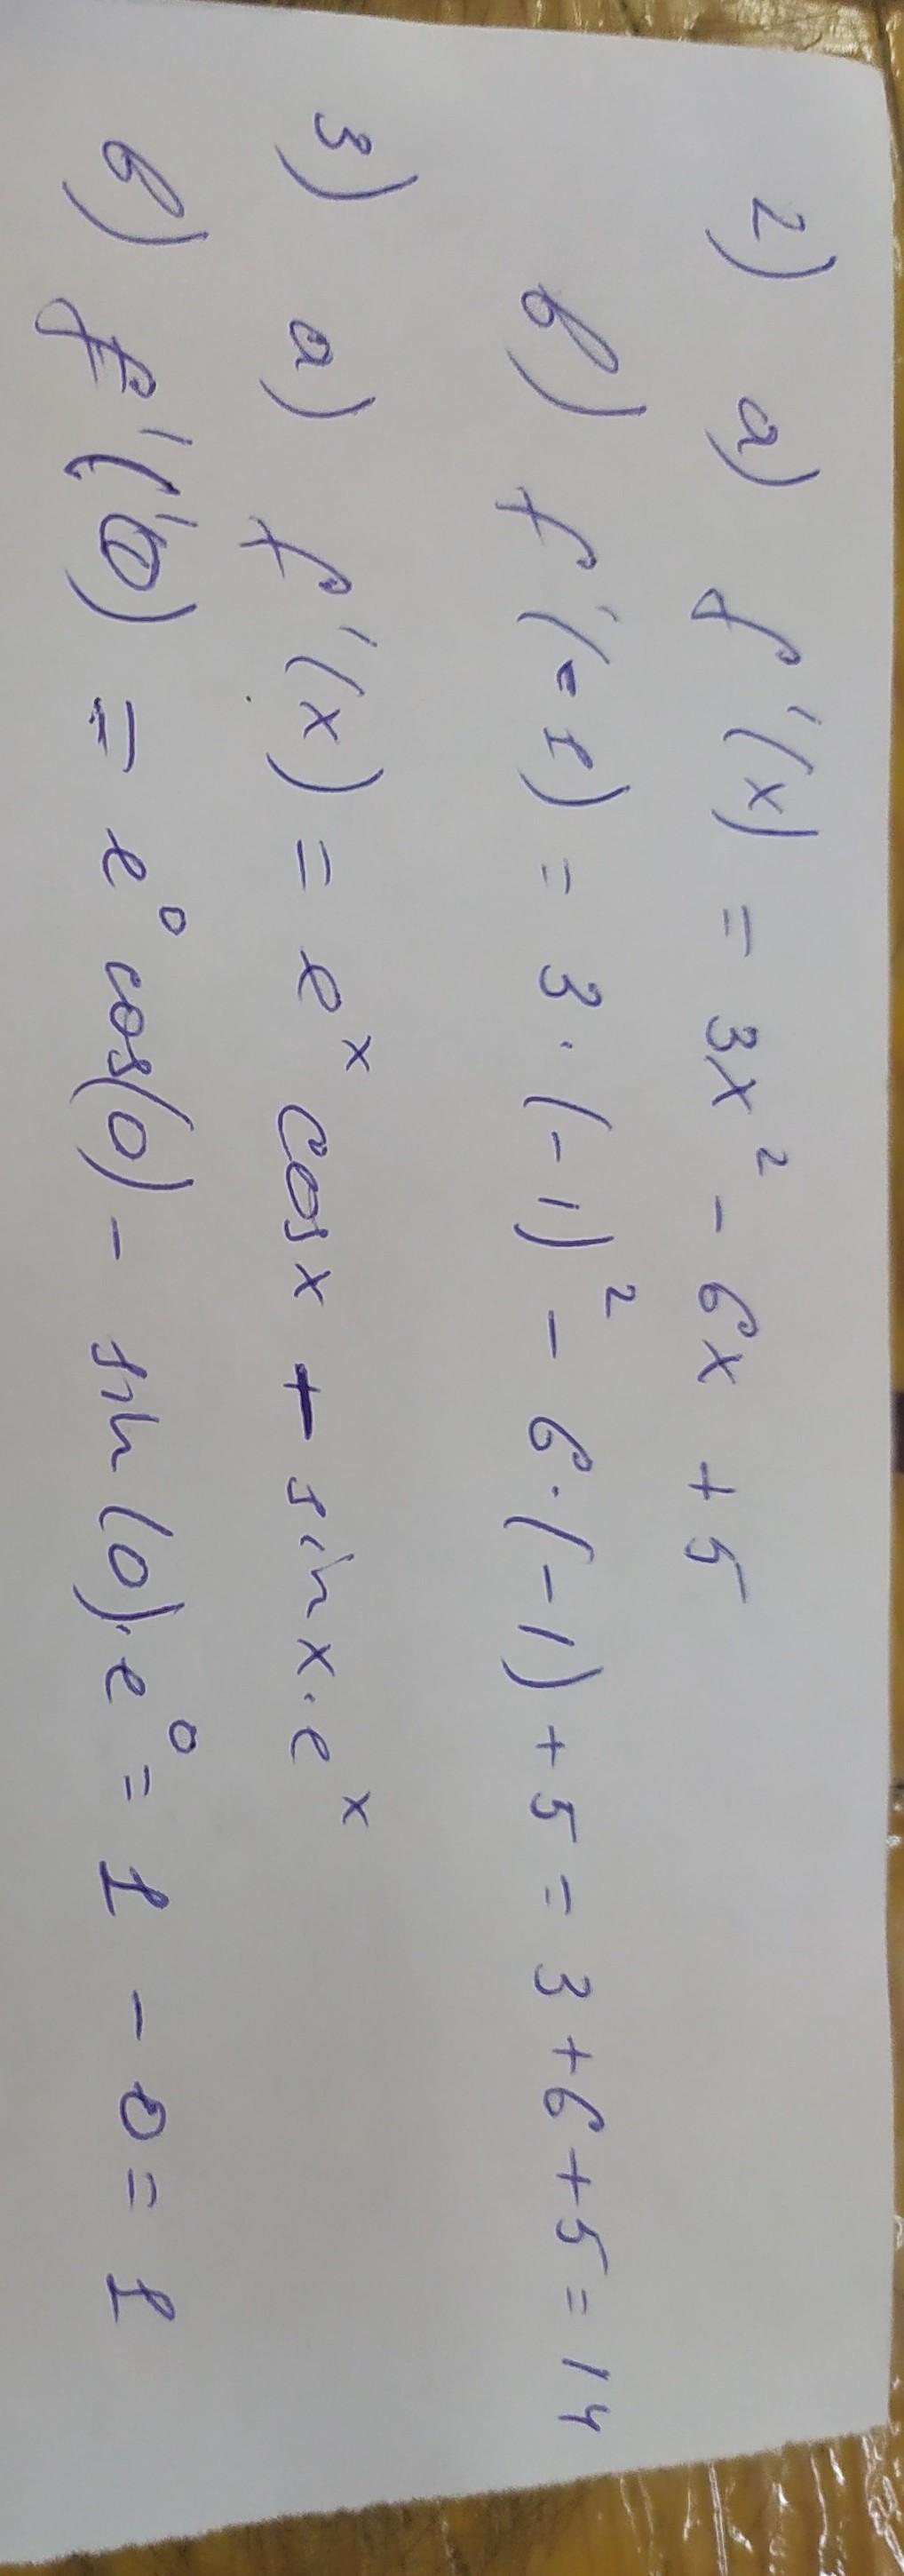 2) a) f'(x) = 3x² - 6x + 5
b) f'(-1) = 3·(-1)² - 6·(-1) + 5 = 3 + 6 + 5 = 14
3) a) f'(x) = eˣ cos x - sin x · eˣ
b) f'(0) = e⁰ cos(0) - sin(0)·e⁰ = 1 - 0 = 1